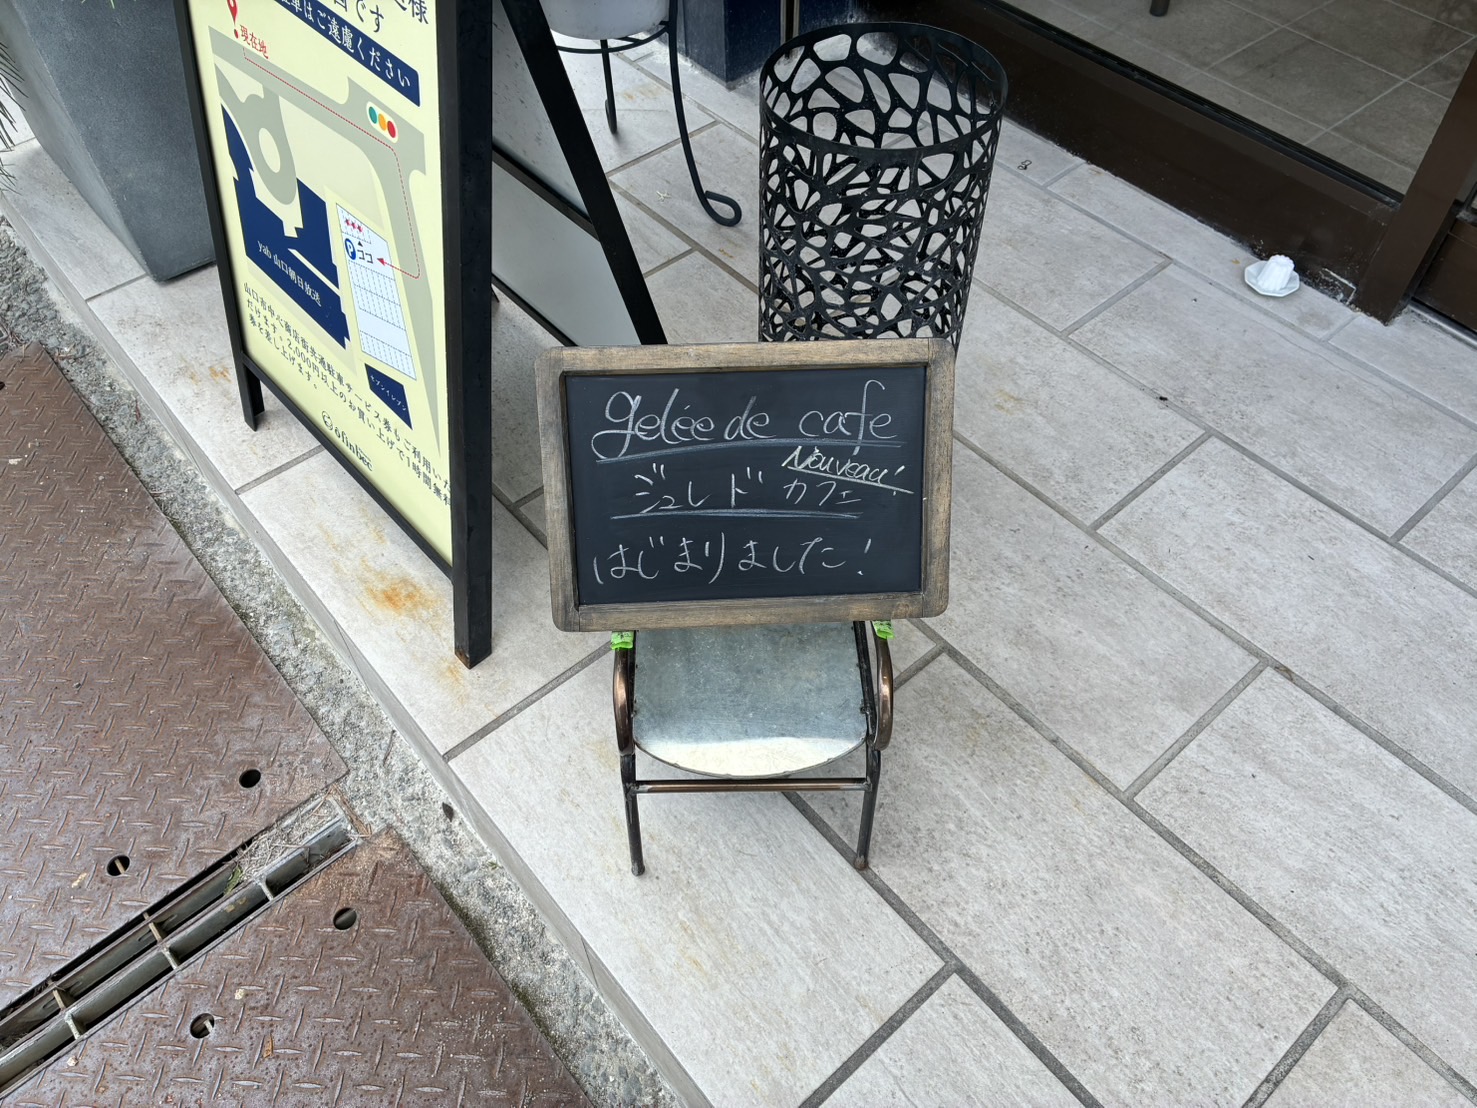 様
です
はご遠慮ください
現在地
ココ
P
yab 山口朝日放送
セブンイレブン
山口市中心商店街共通駐車サービス券もご利用いた
だけます。2,000円以上のお買い上げで1時間無料
券を差し上げます。
gelée de cafe
Nouveau!
ジュレ ド カフェ
はじまりました!